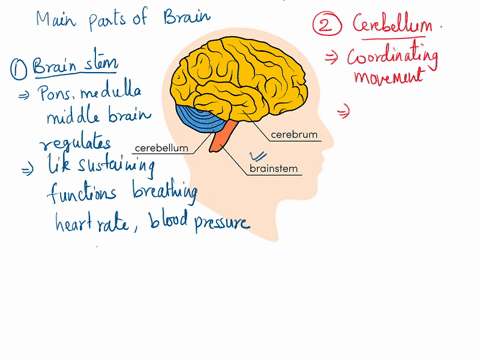 Main parts of Brain
① Brain stem
⇒ Pons, medulla
middle brain
regulates
⇒ Like sustaining
functions breathing
heart rate, blood pressure
② Cerebellum.
⇒ Coordinating
movement
⇒
cerebrum
cerebellum
brainstem